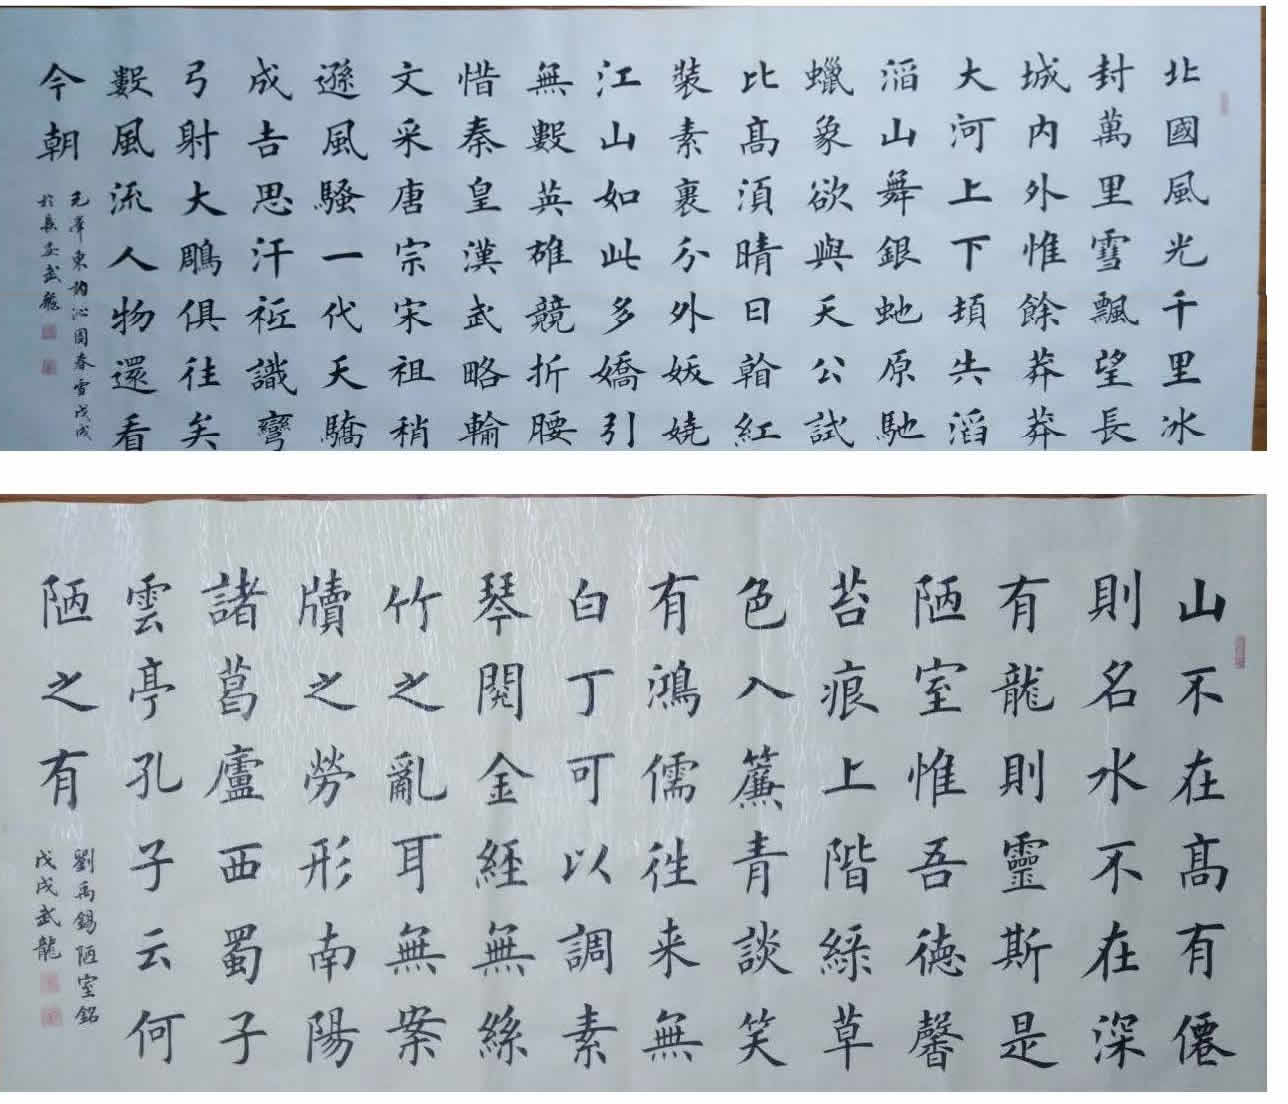 北國風光千里冰
封萬里雪飄望長
城內外惟餘莽莽
大河上下頓失滔
滔山舞銀蛇原馳
蠟象欲與天公試
比高湏晴日翰紅
裝素裹分外妖嬈
江山如此多嬌引
無數英雄競折腰
惜秦皇漢武略輸
文采唐宗宋祖稍
遜風騷一代天驕
成吉思汗祗識彎
弓射大鵰俱往矣
數風流人物還看
今朝
毛澤東詞沁園春雪戊戌
於長安武龍
山不在高有僊
則名水不在深
有龍則靈斯是
陋室惟吾德馨
苔痕上階綠草
色入簾青談笑
有鴻儒往来無
白丁可以調素
琴閱金經無絲
竹之亂耳無案
牘之勞形南陽
諸葛廬西蜀子
雲亭孔子云何
陋之有
劉禹錫陋室銘
戊戌武龍